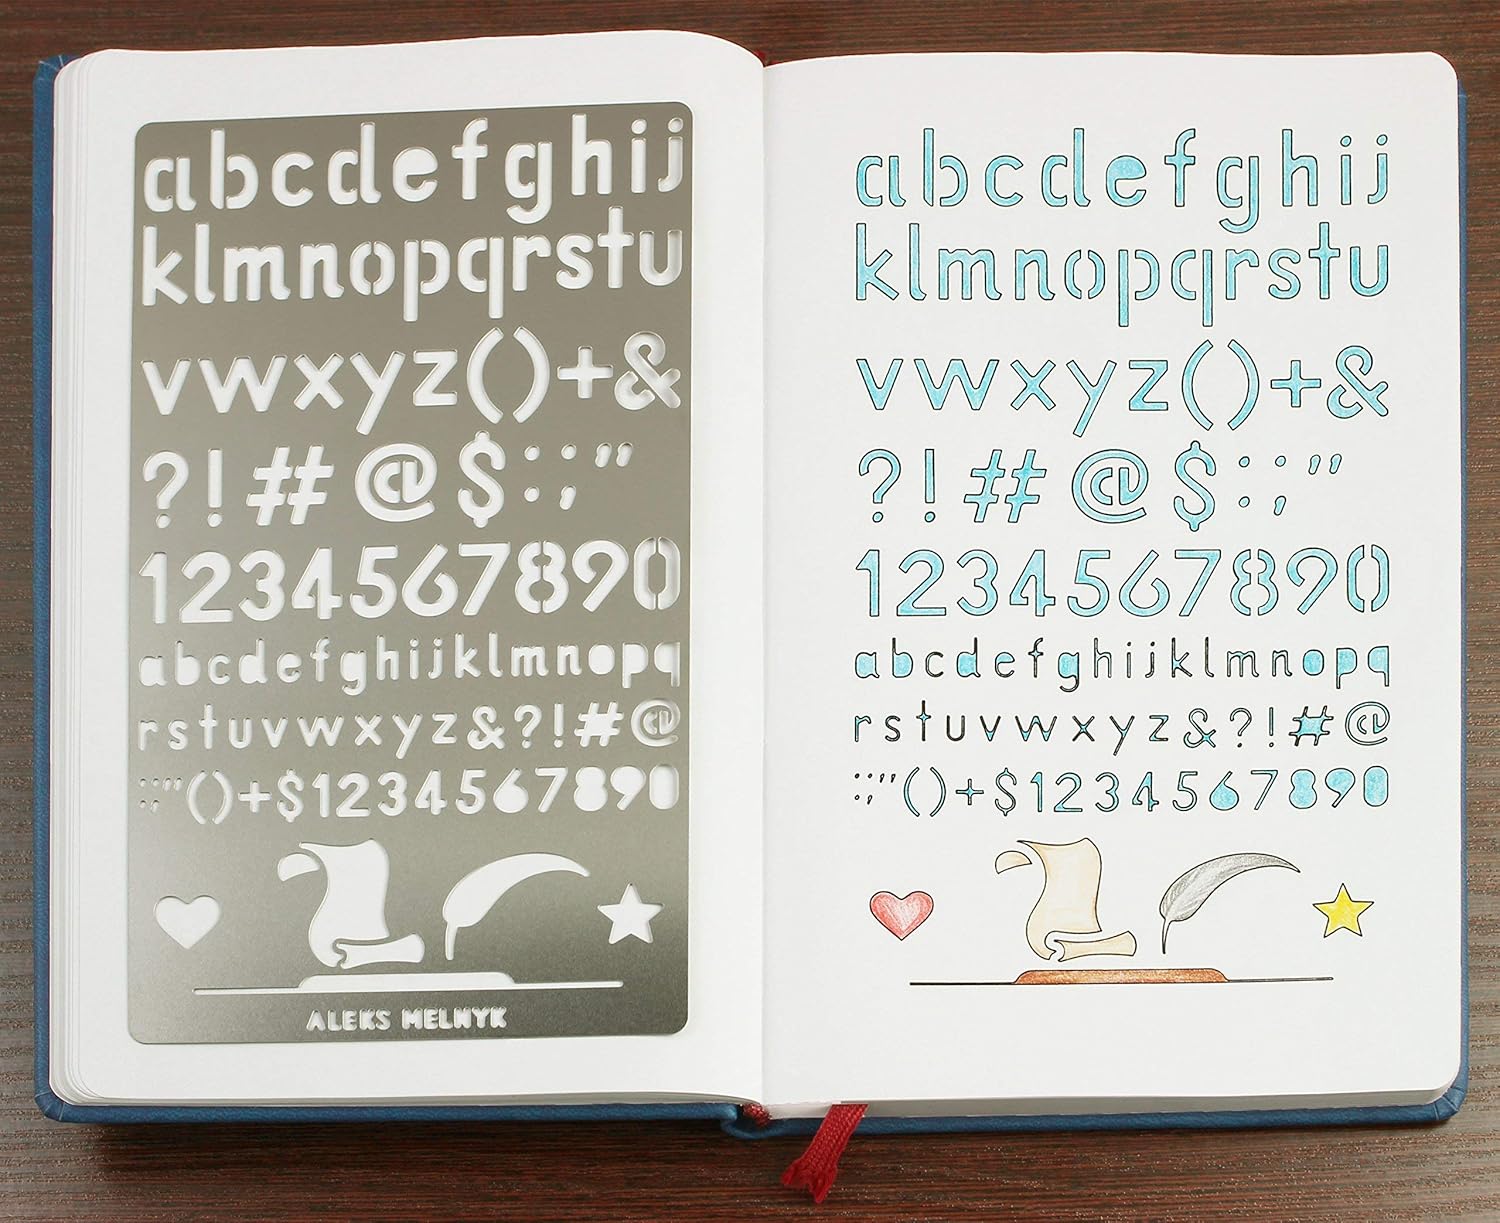 abcdefghij
klmnopqrstu
vwxyz()+&
?!#@$:;"
1234567890
abcdefghijklmnopq
rstuvwxyz&?!#@
:;"()+$1234567890
ALEKS MELNYK
abcdefghij
klmnopqrstu
vwxyz()+&
?!#@$:;"
1234567890
abcdefghijklmnopq
rstuvwxyz&?!#@
:;"()+$1234567890